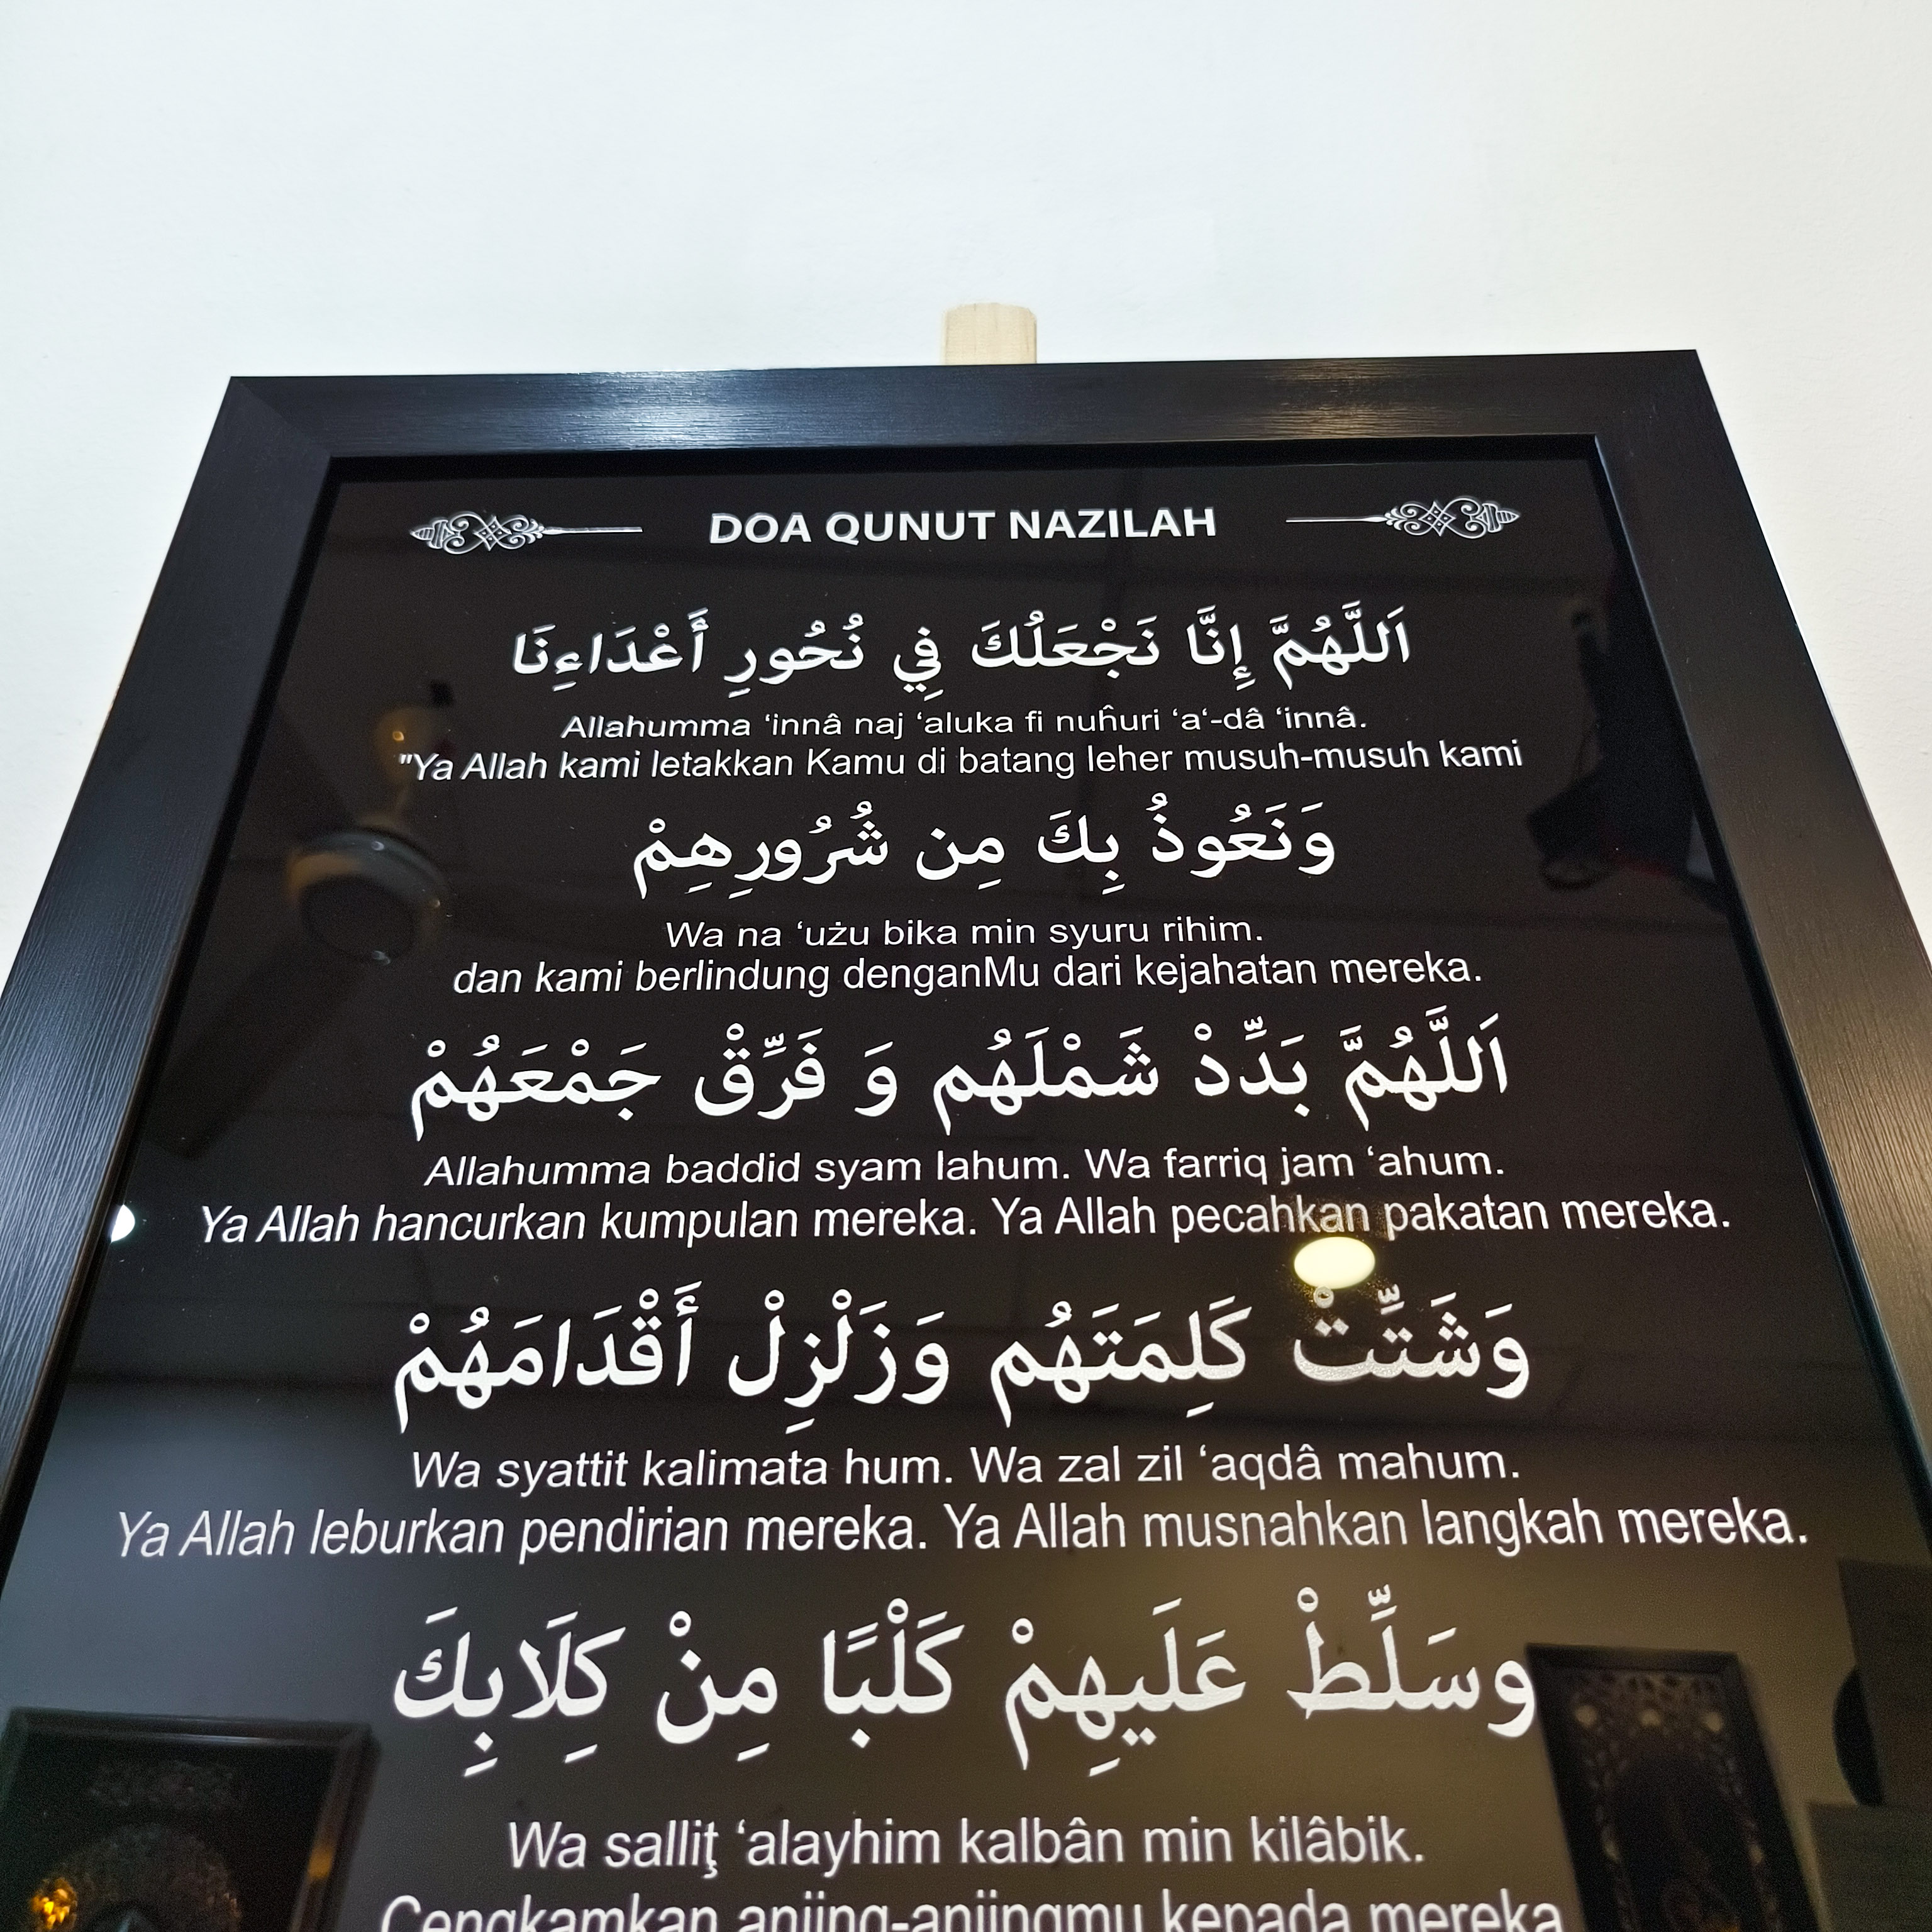 DOA QUNUT NAZILAH
اَللَّهُمَّ إِنَّا نَجْعَلُكَ فِي نُحُورِ أَعْدَاءِنَا
Allahumma ‘innâ naj ‘aluka fi nuĥuri ‘a‘-dâ ‘innâ.
"Ya Allah kami letakkan Kamu di batang leher musuh-musuh kami
وَنَعُوذُ بِكَ مِن شُرُورِهِمْ
Wa na ‘użu bika min syuru rihim.
dan kami berlindung denganMu dari kejahatan mereka.
اَللَّهُمَّ بَدِّدْ شَمْلَهُم وَ فَرِّقْ جَمْعَهُمْ
Allahumma baddid syam lahum. Wa farriq jam ‘ahum.
Ya Allah hancurkan kumpulan mereka. Ya Allah pecahkan pakatan mereka.
وَشَتِّتْ كَلِمَتَهُم وَزَلْزِلْ أَقْدَامَهُمْ
Wa syattit kalimata hum. Wa zal zil ‘aqdâ mahum.
Ya Allah leburkan pendirian mereka. Ya Allah musnahkan langkah mereka.
وسَلِّطْ عَلَيهِمْ كَلْبًا مِنْ كِلَابِكَ
Wa salliţ ‘alayhim kalbân min kilâbik.
Cengkamkan anjing-anjingmu kepada mereka